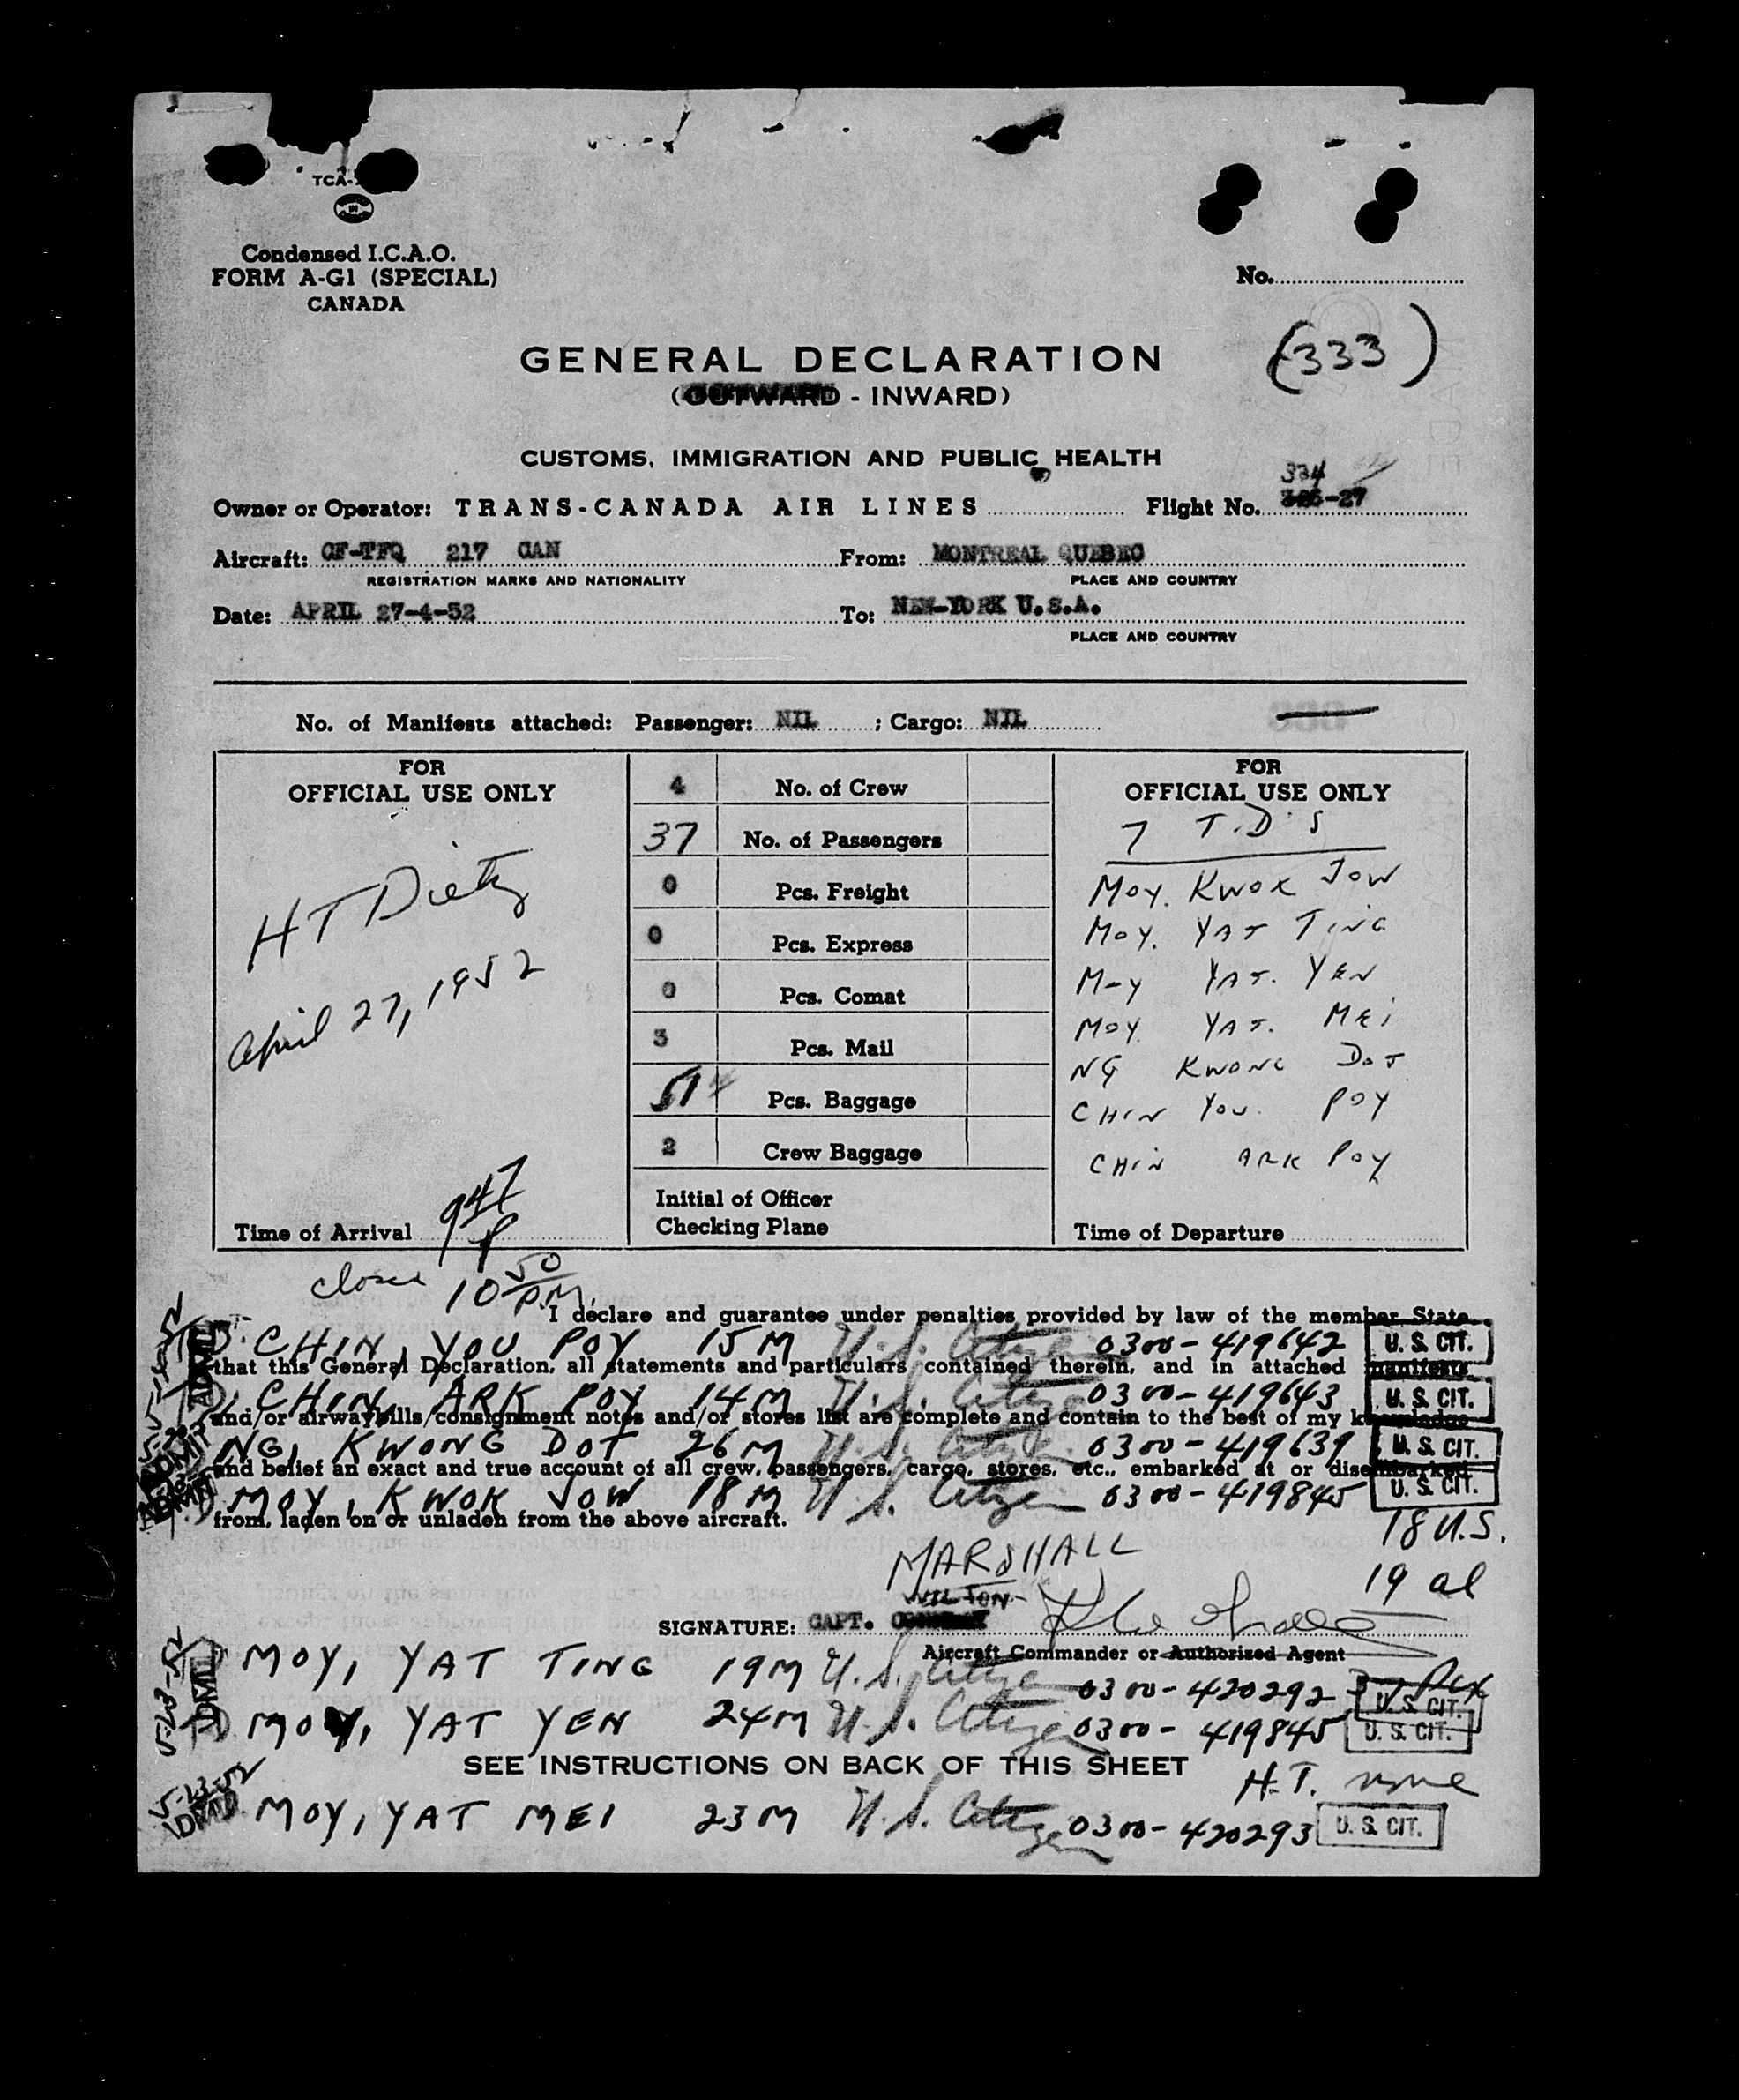 TCA-
Condensed I.C.A.O.
FORM A-G1 (SPECIAL)
CANADA
No.
(333)
GENERAL DECLARATION
(OUTWARD - INWARD)
CUSTOMS, IMMIGRATION AND PUBLIC HEALTH
334
Owner or Operator: TRANS-CANADA AIR LINES Flight No. -27
Aircraft: CF-TFQ 217 CAN From: MONTREAL QUEBEC
REGISTRATION MARKS AND NATIONALITY PLACE AND COUNTRY
Date: APRIL 27-4-52 To: NEW-YORK U.S.A.
PLACE AND COUNTRY
No. of Manifests attached: Passenger: NIL ; Cargo: NIL
FOR
OFFICIAL USE ONLY
HT Dietz
April 27, 1952
Time of Arrival 9 47 P
4 No. of Crew
37 No. of Passengers
0 Pcs. Freight
0 Pcs. Express
0 Pcs. Comat
3 Pcs. Mail
51 Pcs. Baggage
2 Crew Baggage
Initial of Officer
Checking Plane
FOR
OFFICIAL USE ONLY
7 T.D'S
MOY. KWOK JOW
MOY. YAT TING
MOY YAT. YEN
MOY YAT. MEI
NG KWONG DOT
CHIN YOU POY
CHIN ARK POY
Time of Departure
10 50 P.M.
I declare and guarantee under penalties provided by law of the member State
CHIN, YOU POY 15 M U.S. Citizen 0300-419642 U. S. CIT.
that this General Declaration, all statements and particulars contained therein, and in attached manifests
CHIN, ARK POY 14 M U.S. Citizen 0300-419643 U. S. CIT.
and/or airwaybills/consignment notes and/or stores list are complete and contain to the best of my knowledge
NG, KWONG DOT 26 M U.S. Citizen 0300-419639 U. S. CIT.
and belief an exact and true account of all crew, passengers, cargo, stores, etc., embarked at or disembarked
MOY, KWOK JOW 18 M U.S. Citizen 0300-419845 U. S. CIT.
from, laden on or unladen from the above aircraft.
18 U.S.
19 al
MARSHALL
WILTON
SIGNATURE: CAPT.
Aircraft Commander or Authorized Agent
MOY, YAT TING 19 M U.S. Citizen 0300-420292 U. S. CIT.
5-23-52
MOY, YAT YEN 24 M U.S. Citizen 0300-419845 U. S. CIT.
SEE INSTRUCTIONS ON BACK OF THIS SHEET
H.T. none
5-23-52
MOY, YAT MEI 23 M U.S. Citizen 0300-420293 U. S. CIT.